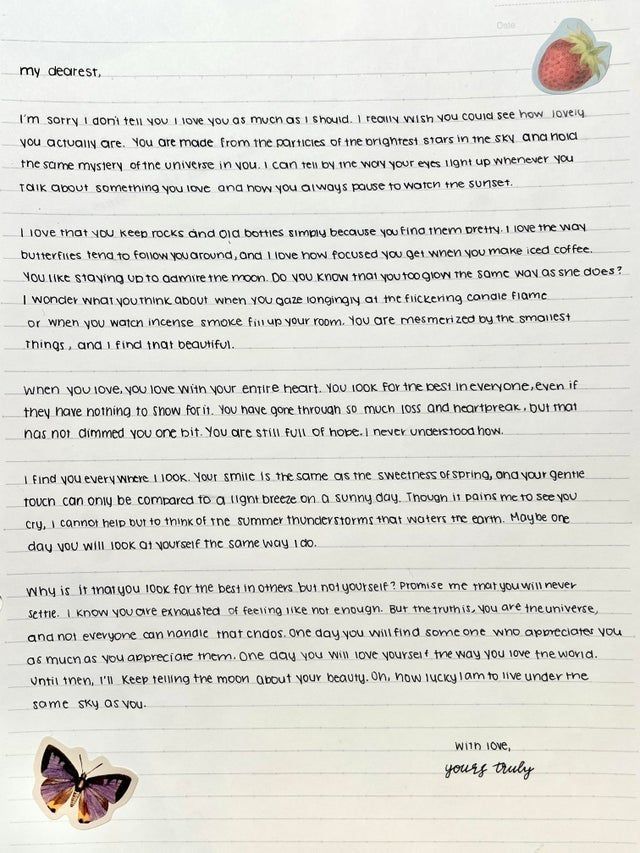 Date
my dearest,
I'm sorry I don't tell you I love you as much as I should. I really wish you could see how lovely
you actually are. You are made from the particles of the brightest stars in the sky and hold
the same mystery of the universe in you. I can tell by the way your eyes light up whenever you
talk about something you love and how you always pause to watch the sunset.
I love that you keep rocks and old bottles simply because you find them pretty. I love the way
butterflies tend to follow you around, and I love how focused you get when you make iced coffee.
You like staying up to admire the moon. Do you know that you too glow the same way as she does?
I wonder what you think about when you gaze longingly at the flickering candle flame
or when you watch incense smoke fill up your room. You are mesmerized by the smallest
things, and I find that beautiful.
When you love, you love with your entire heart. You look for the best in everyone, even if
they have nothing to show for it. You have gone through so much loss and heartbreak, but that
has not dimmed you one bit. You are still full of hope. I never understood how.
I find you everywhere I look. Your smile is the same as the sweetness of spring, and your gentle
touch can only be compared to a light breeze on a sunny day. Though it pains me to see you
cry, I cannot help but to think of the summer thunderstorms that waters the earth. Maybe one
day you will look at yourself the same way I do.
Why is it that you look for the best in others but not yourself? Promise me that you will never
settle. I know you are exhausted of feeling like not enough. But the truth is, you are the universe,
and not everyone can handle that chaos. One day you will find someone who appreciates you
as much as you appreciate them. One day you will love yourself the way you love the world.
Until then, I'll keep telling the moon about your beauty. Oh, how lucky I am to live under the
same sky as you.
With love,
yours truly